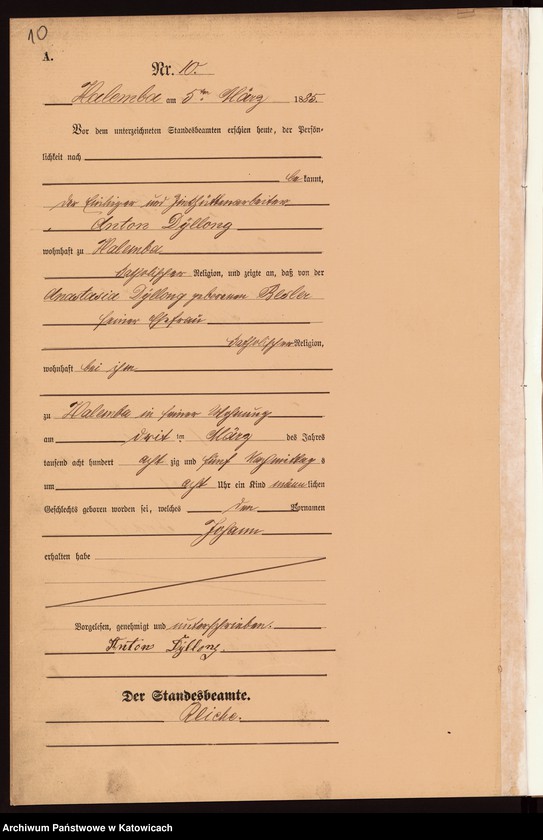 10
A.
Nr. 10.
Halemba am 5ten März 1885.
Vor dem unterzeichneten Standesbeamten erschien heute, der Persön-
lichkeit nach
bekannt,
der Einlieger und Zinkhüttenarbeiter
Anton Dÿllong
wohnhaft zu Halemba
katholischer Religion, und zeigte an, daß von der
Anastasia Dÿllong geborenen Besler
seiner Ehefrau
katholischer Religion,
wohnhaft bei ihm
zu Halemba in seiner Wohnung
am dritten März des Jahres
tausend acht hundert acht zig und fünf Nachmittags
um acht Uhr ein Kind männlichen
Geschlechts geboren worden sei, welches den Vornamen
Johann
erhalten habe
Vorgelesen, genehmigt und unterschrieben.
Anton Dÿllong.
Der Standesbeamte.
Reiche.
Archiwum Państwowe w Katowicach